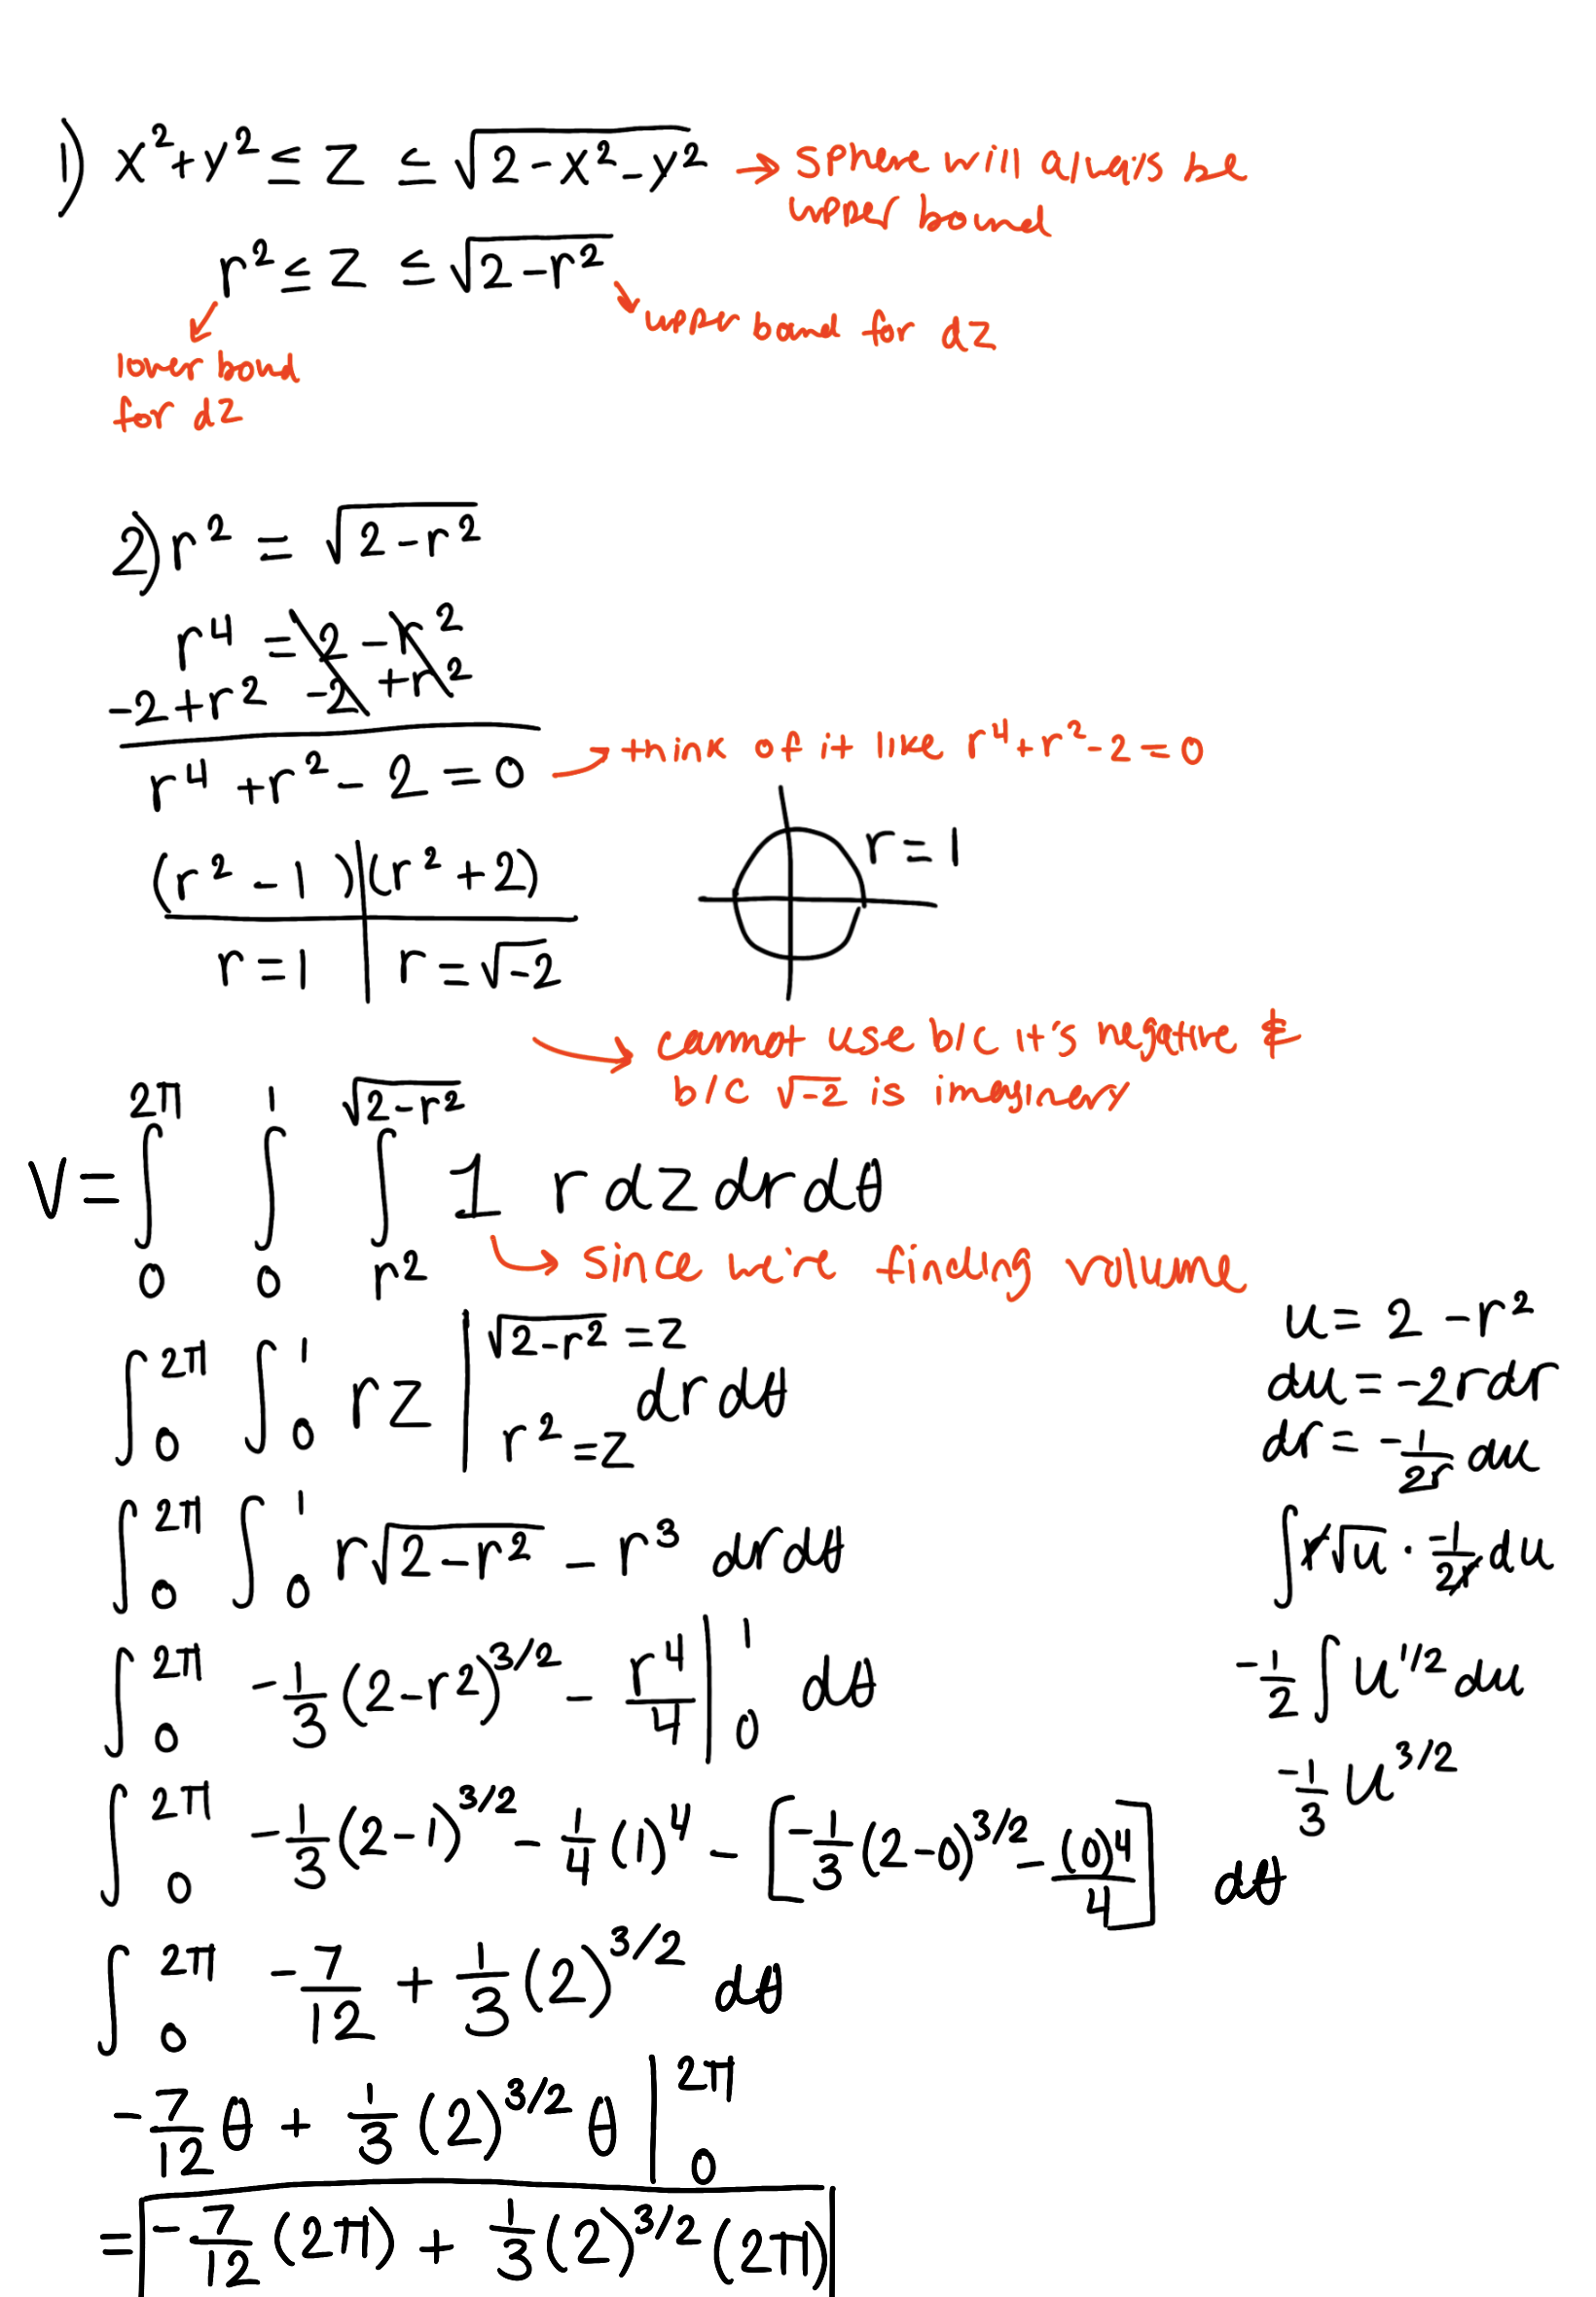 1) x²+y² ≤ z ≤ √(2-x²-y²) → sphere will always be
upper bound
r² ≤ z ≤ √(2-r²)
upper bound for dz
lower bound
for dz
2) r² = √(2-r²)
r⁴ = 2-r²
-2+r² -2 +r²
r⁴+r²-2=0 → think of it like r⁴+r²-2=0
(r²-1) | (r²+2)
r=1
r=1 | r=√-2
→ cannot use b/c it's negative &
b/c √-2 is imaginery
V= ∫₀^2π ∫₀^1 ∫_r²^√(2-r²) 1 r dz dr dθ
→ since we're finding volume
∫₀^2π ∫₀^1 rz |_(r²=z)^(√(2-r²)=z) drdθ
∫₀^2π ∫₀^1 r√(2-r²) - r³ drdθ
∫₀^2π -1/3 (2-r²)^3/2 - r⁴/4 |₀^1 dθ
∫₀^2π -1/3 (2-1)^3/2 - 1/4 (1)⁴ - [-1/3 (2-0)^3/2 - (0)⁴/4] dθ
∫₀^2π -7/12 + 1/3 (2)^3/2 dθ
-7/12 θ + 1/3 (2)^3/2 θ |₀^2π
= -7/12 (2π) + 1/3 (2)^3/2 (2π)
u = 2-r²
du = -2rdr
dr = -1/2r du
∫ r√u · -1/2r du
-1/2 ∫ u^1/2 du
-1/3 u^3/2